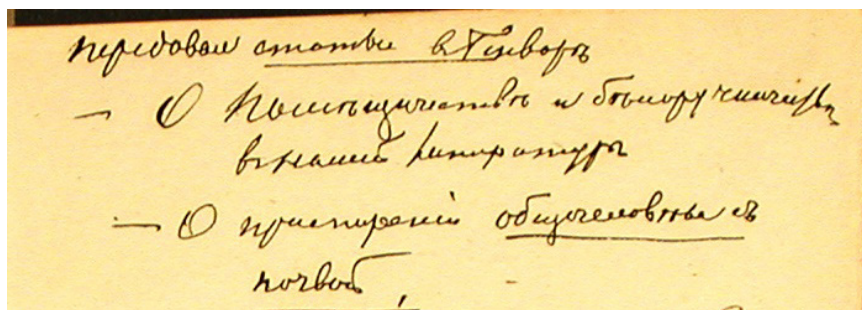 Передовая статья в Генварѣ
— О помѣщичествѣ и бѣлоручничествѣ
въ нашей литературѣ
— О примиреніи общечеловѣка съ
почвой,